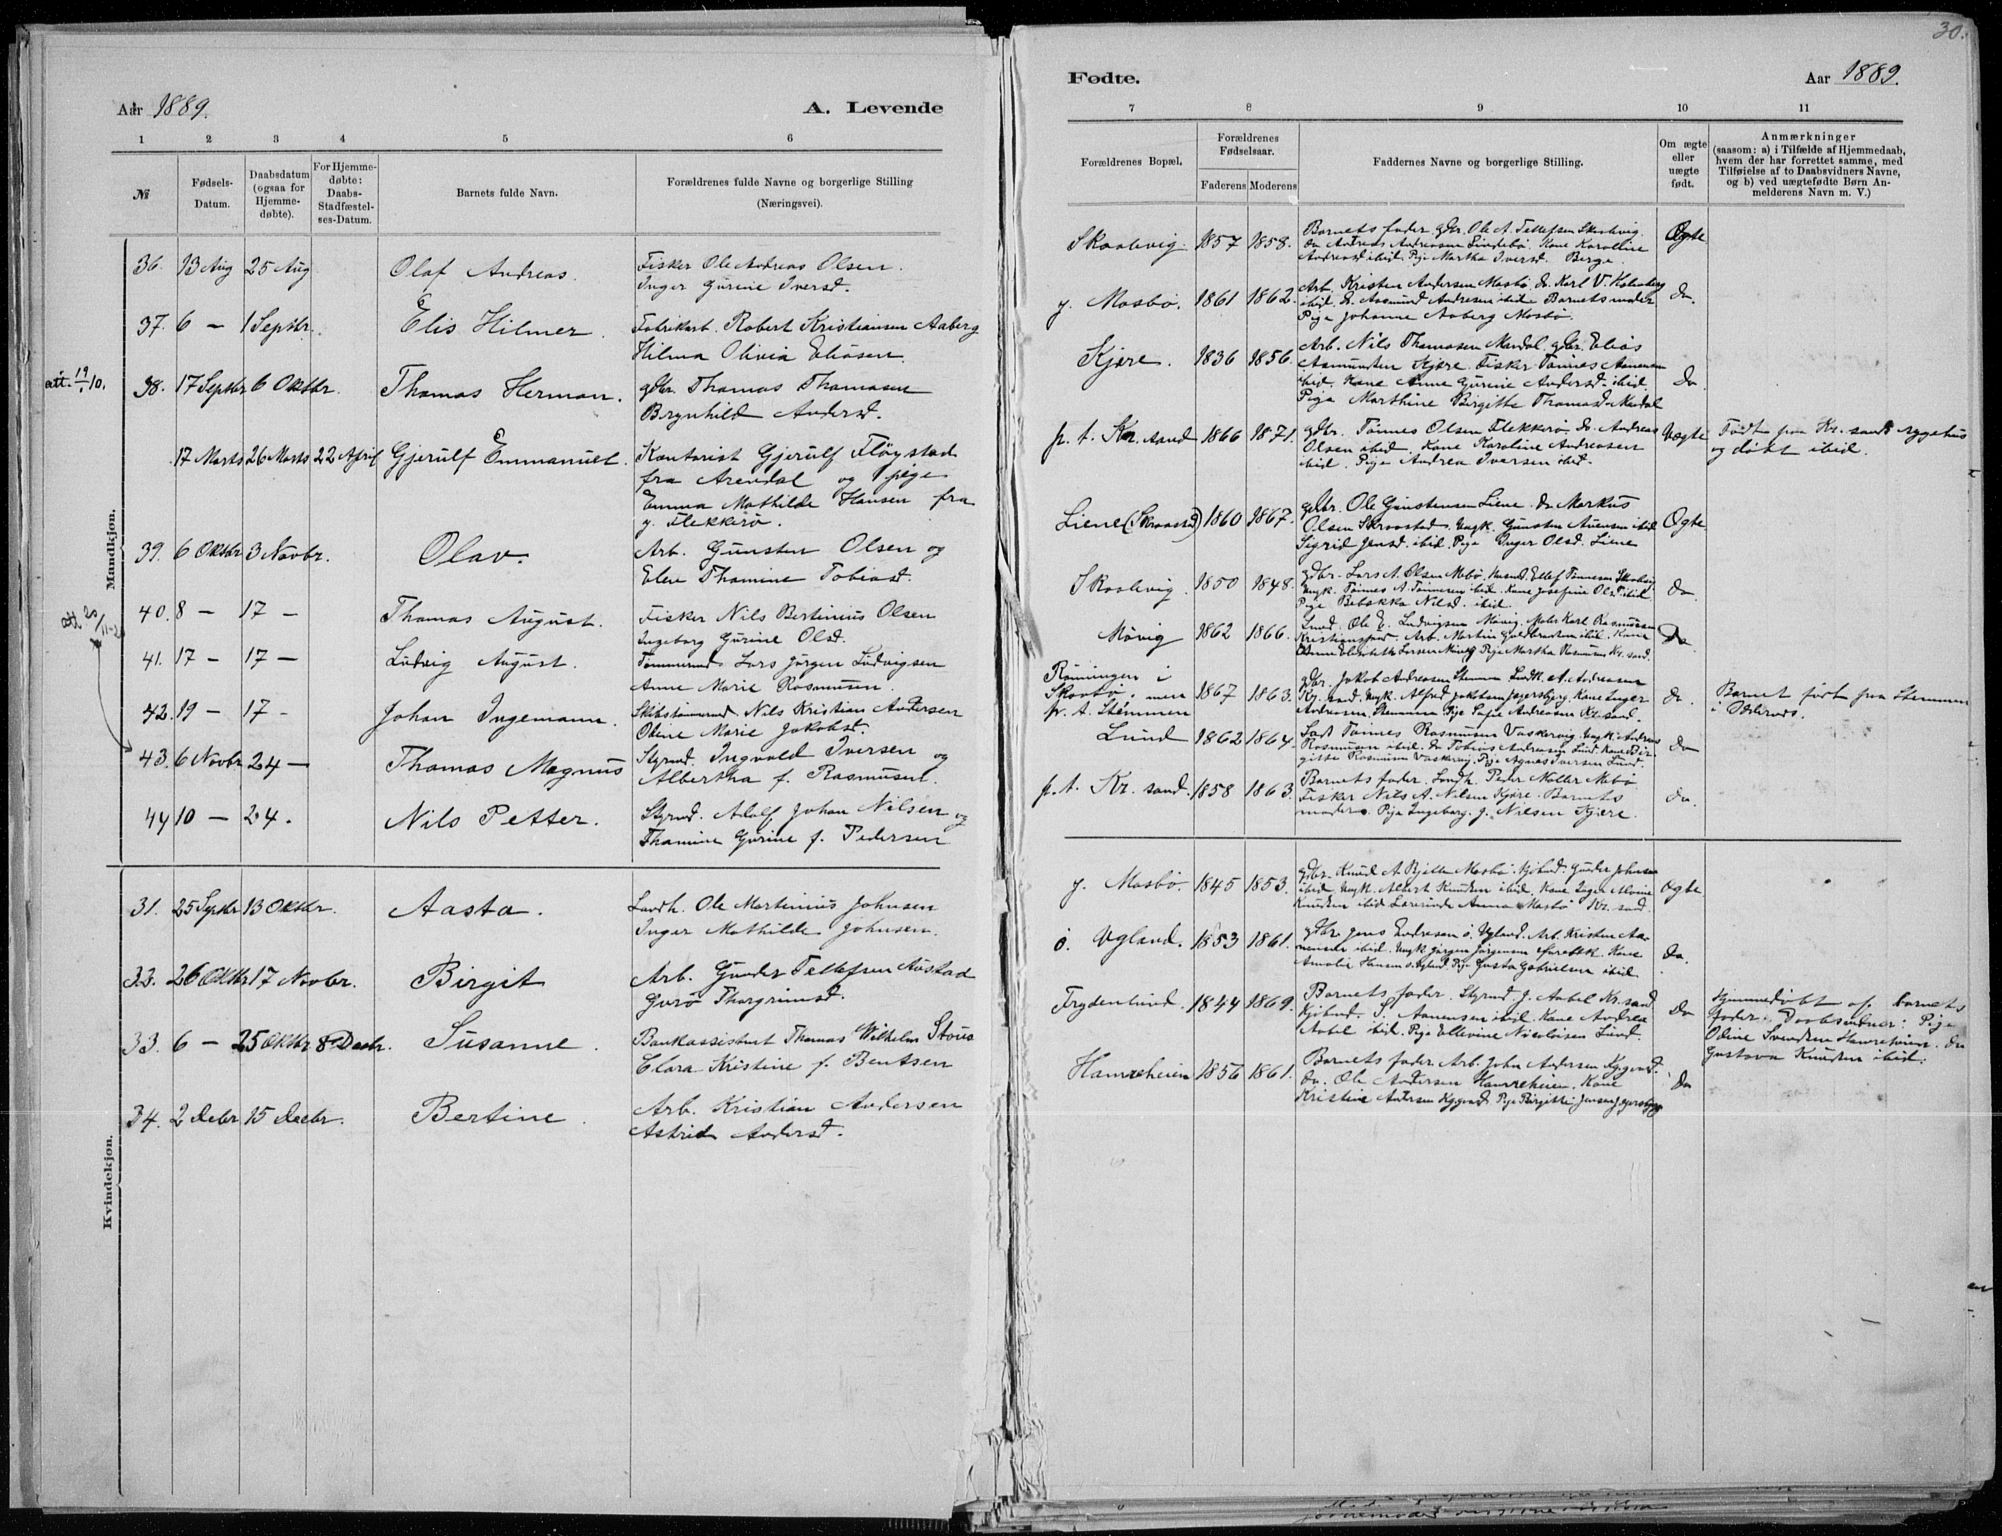 30.
Aar 1889.
A. Levende
1 2 3 4 5 6
№
Fødsels-
Datum.
Daabsdatum
(ogsaa for
Hjemme-
døbte).
For Hjemme-
døbte:
Daabs-
Stadfæstel-
ses-Datum.
Barnets fulde Navn.
Forældrenes fulde Navne og borgerlige Stilling
(Næringsvei).
Mandkjøn.
36. 13 Aug 25 Aug Olaf Andreas. Fisker Ole Andreas Olsen.
Inger Gurine Iversd.
37. 6 — 1 Septbr. Elis Hilmer Fabrikarb. Robert Kristiansen Aaberg
Hilma Olivia Eliasen.
att. 19/10.
38. 17 Septbr 6 Oktbr. Thomas Herman. gdbr. Thomas Thomasen
Brynhild Andersd.
17 Marts 26 Marts 22 April Gjerulf Emmanuel. Kontorist Gjerulf Fløystad
fra Arendal og pige
Emma Mathilde Hansen fra
y. Flekkerø.
39. 6 Oktbr 3 Novbr. Olav. Arb. Gunsten Olsen og
Elen Thomine Tobiasd.
40. 8 — 17 — Thomas August. Fisker Nils Bertinius Olsen
Ingeborg Gurine Olsd.
41. 17 — 17 — Ludvig August. Tømmermd. Lars Jørgen Ludvigsen
Anne Marie Rasmusen.
42. 19 — 17 — Johan Ingemann. Skibstømmermd. Nils Kristian Andersen
Oline Marie Jakobsd.
43. 6 Novbr 24 — Thomas Magnus Styrmd. Ingvald Iversen og
Albertha f. Rasmusen.
44 10 — 24. Nils Petter. Styrmd. Adolf Johan Nilsen og
Thomine Gurine f. Pedersen
Kvindekjøn.
31. 25 Septbr 13 Oktbr. Aasta. Landh. Ole Martinius Johnsen
Inger Mathilde Johnsen.
33. 26 Oktbr 17 Novbr. Birgit Arb. Gunder Tellefsen Austad
Guro Thorgrimsd.
33. 6 — 25 Oktbr 8 Decbr. Susanne. Bankassistent Thomas Wilhelm Stous
Clara Kristine f. Bentsen
34. 2 Decbr 15 Decbr. Bertine. Arb. Kristian Andersen
Astrid Andersd.
Fødte.
Aar 1889.
7 8 9 10 11
Forældrenes Bopæl.
Forældrenes
Fødselsaar.
Faderens Moderens
Faddernes Navne og borgerlige Stilling.
Om ægte
eller
uægte
født.
Anmærkninger
(saasom: a) i Tilfælde af Hjemmedaab,
hvem der har forrettet samme, med
Tilføielse af to Daabsvidners Navne,
og b) ved uægtefødte Børn An-
melderens Navn m. V.)
Skaalevig. 1857 1858. Barnets fader. gdbr. Ole A. Tellefsen Skaalevig. Ægte
do Andreas Andreasen Lindebø. Kone Karoline
Andreasd ibid. Pige Martha Iversd. Berge.
y. Mosbø. 1861 1862. Arb. Kristen Andersen Mosbø. do. Karl V. Holmberg do.
ibid. do. Aasmund Andresen ibid. Barnets moder
Pige Johanne Aaberg Mosbø.
Kjære. 1836 1856. Arb. Nils Thomasen Mandal. gdbr. Elias
Asmundsen Kjære. Fisker Tønnes Asmunsen
ibid. Kone Anne Gurine Andersd. ibid. Do
Pige Marthine Birgitte Thomasd Mandal
p. t. Kr.sand 1866 1871. gdbr. Tønnes Olsen Flekkerø. do. Andreas Uægte Født paa Kr.sands sygehus
Olsen ibid. Kone Karoline Andreasen og døbt ibid.
ibid. Pige Andrea Iversen ibid.
Liene (Skraastad) 1860 1867. gdbr. Ole Gunstensen Liene. do Markus
Olsen Skraastad. Ungk. Gunsten Aensen ibid Ægte
Sigrid Jensd. ibid. Pige Inger Olsd. Liene
Skaalevig. 1850 1848. gdbr. Lars A. Olsen Mebø. Ellef Tønnesen Skaalevig
Ungk. Tønnes A. Tønnesen ibid. Kone Josefine Olsd. ibid. do
Pige Bebekka Nilsd. ibid.
Møvig 1862 1866. Ole E. Ludvigsen Møvig. Karl Rasmussen
Kristiansand. Arb. Martin Guldbrandsen ibid. Kone Do
Anne Elisabeth Larsen Møvig Pige Martha Rasmusen Kr.sand.
Rønningen i
Skaabø. men
p. t. Stemmen 1867 1863. gdbr. Jakob Andreasen Stemmen Landh. A. Andreasen do Barnet født paa Stemmen
Kr.sand. Ungk. Alfred Jakobsen Jegersberg. Kone Inger i Oddernes.
Andreasen. Stemmen Pige Sofie Andreasen Kr.sand.
Lund 1862 1864. Tønnes Rasmusen Vaskervig. Ungk Andreas
Rasmusen ibid. do Tobias Andreasen Lund. Kone Bir- do
gitte Rasmusen Vaskervig. Pige Agnes Iversen Lund.
p. t. Kr. sand. 1858 1863. Barnets fader. Landh. Peder Møller Mebø
Fisker Nils A. Nilsen Kjære. Barnets do.
moder. Pige Ingeborg J. Nilsen Kjære.
y. Mosbø. 1845 1853. gdbr. Knud A. Mosbø. Gunder Johnsen
ibid. Ungk. Albert Knudsen ibid. Kone Inger Ægte
Knudsen ibid Lærerinde Anna Mosbø Kr. sand.
ö. Ugland. 1853 1861. gdbr Jens Andresen ö. Ugland. Arb. Kristen Aa-
nensen ibid. Ungk Jørgen Jørgensen ibid. Kone do.
Amalie Hansen ö. Ugland Pige Gusta Gabrielsen ibid.
Frydenlund. 1844 1869. Barnets fader. Styrmd. J. Aabel Kr.sand do Hjemmedøbt af barnets
Kjøbmd. S. Aanensen ibid. Kone Andrea fader. Daabsvidner: Pige
Aabel ibid. Pige Ellevine Nicolaisen Lund. Odine Svendsen Hamreheien. do
Gustava Knudsen ibid.
Hamreheien 1856 1861. Barnets fader. Arb. John Andersen
do. Ole Andersen Hamreheien. Kone do
Kristine Andersen Pige Birgitte Jensen Jegersberg